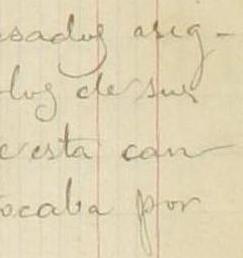 esados asig-
los de sus
esta can-
ocaba por